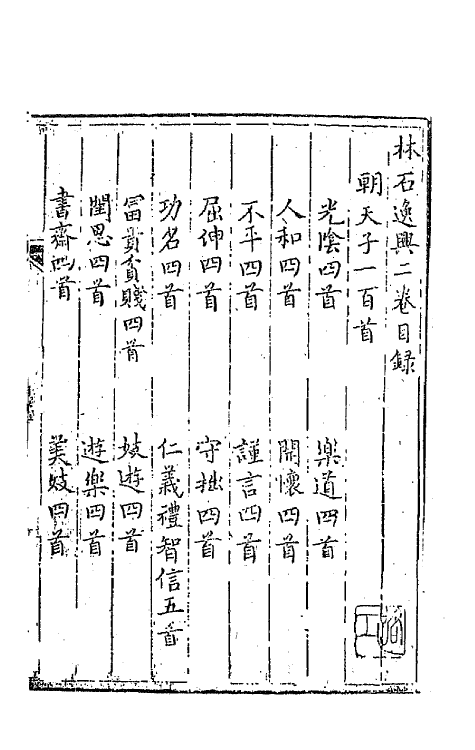 林石逸興二卷目錄
朝天子一百首
光陰四首
樂道四首
人和四首
開懷四首
不平四首
謹言四首
屈伸四首
守拙四首
功名四首
仁義禮智信五首
冨貴貧賤四首
妓遊四首
閨思四首
遊樂四首
書齋四首
美妓四首